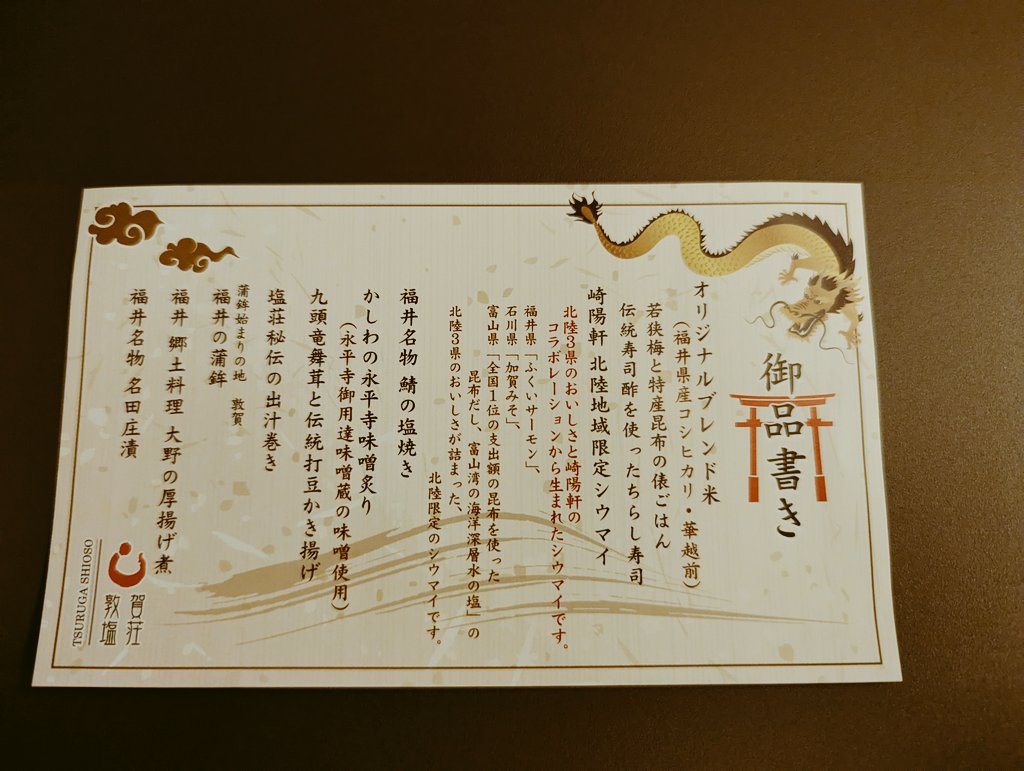 御品書き
オリジナルブレンド米
(福井県産コシヒカリ・華越前)
若狭梅と特産昆布の俵ごはん
伝統寿司酢を使ったちらし寿司
崎陽軒 北陸地域限定シウマイ
北陸3県のおいしさと崎陽軒の
コラボレーションから生まれたシウマイです。
福井県「ふくいサーモン」、
石川県「加賀みそ」、
富山県「全国1位の支出額の昆布を使った
昆布だし、富山湾の海洋深層水の塩」の
北陸3県のおいしさが詰まった、
北陸限定のシウマイです。
福井名物 鯖の塩焼き
かしわの永平寺味噌炙り
(永平寺御用達味噌蔵の味噌使用)
九頭竜舞茸と伝統打豆かき揚げ
塩荘秘伝の出汁巻き
蒲鉾始まりの地 敦賀
福井の蒲鉾
福井 郷土料理 大野の厚揚げ煮
福井名物 名田庄漬
敦賀
塩荘
TSURUGA SHIOSO